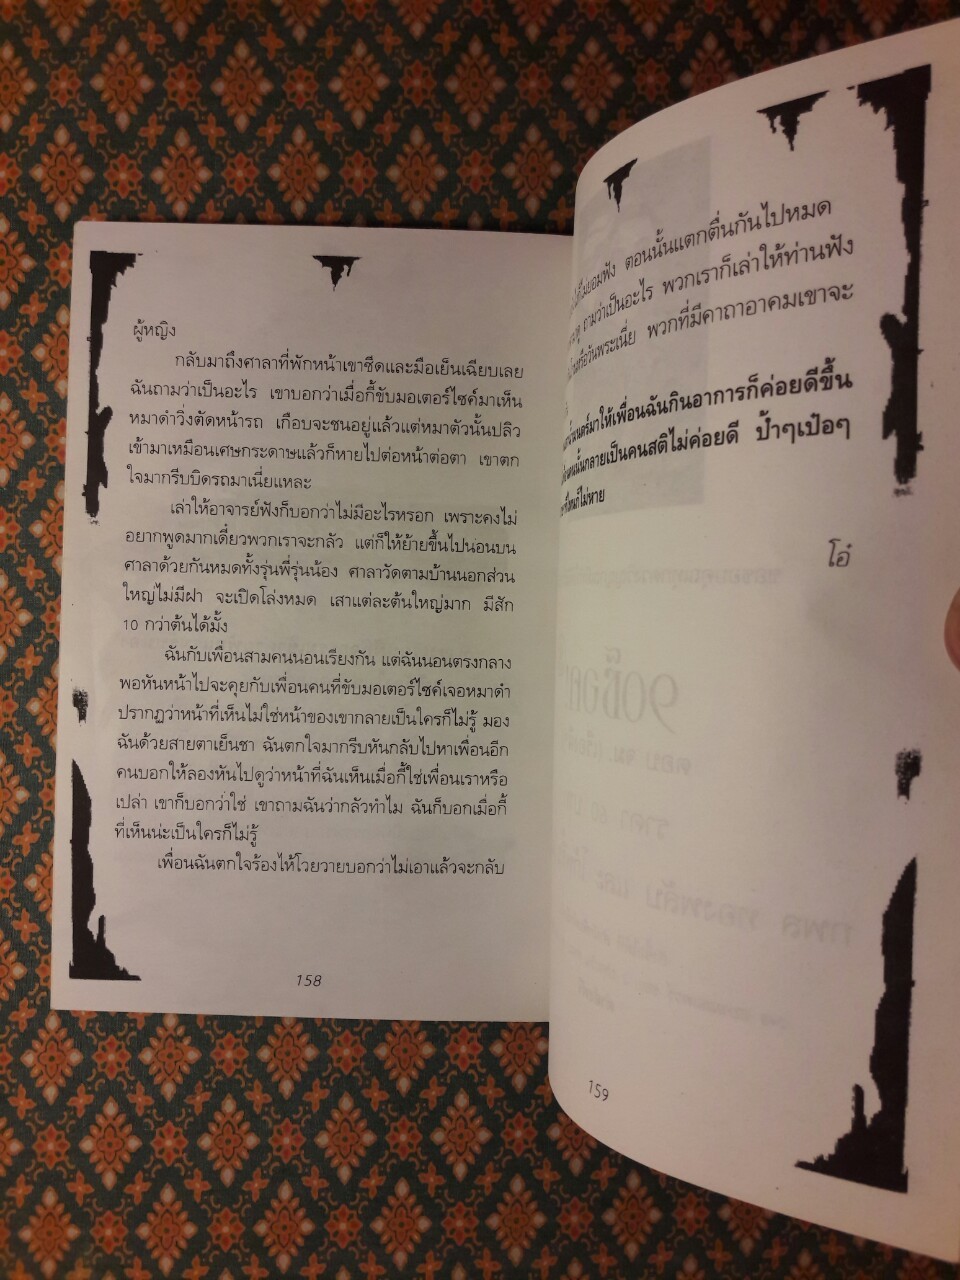 ผู้หญิง
กลับมาถึงศาลาที่พักหน้าเขาซีดและมือเย็นเฉียบเลย
ฉันถามว่าเป็นอะไร เขาบอกว่าเมื่อกี้ขับมอเตอร์ไซค์มาเห็น
หมาดำวิ่งตัดหน้ารถ เกือบจะชนอยู่แล้วแต่หมาตัวนั้นปลิว
เข้ามาเหมือนเศษกระดาษแล้วก็หายไปต่อหน้าต่อตา เขาตก
ใจมากรีบบิดรถมาเนี่ยแหละ
เล่าให้อาจารย์ฟังก็บอกว่าไม่มีอะไรหรอก เพราะคงไม่
อยากพูดมากเดี๋ยวพวกเราจะกลัว แต่ก็ให้ย้ายขึ้นไปนอนบน
ศาลาด้วยกันหมดทั้งรุ่นพี่รุ่นน้อง ศาลาวัดตามบ้านนอกส่วน
ใหญ่ไม่มีฝา จะเปิดโล่งหมด เสาแต่ละต้นใหญ่มาก มีสัก
10 กว่าต้นได้มั้ง
ฉันกับเพื่อนสามคนนอนเรียงกัน แต่ฉันนอนตรงกลาง
พอหันหน้าไปจะคุยกับเพื่อนคนที่ขับมอเตอร์ไซค์เจอหมาดำ
ปรากฏว่าหน้าที่เห็นไม่ใช่หน้าของเขากลายเป็นใครก็ไม่รู้ มอง
ฉันด้วยสายตาเย็นชา ฉันตกใจมากรีบหันกลับไปหาเพื่อนอีก
คนบอกให้ลองหันไปดูว่าหน้าที่ฉันเห็นเมื่อกี้ใช่เพื่อนเราหรือ
เปล่า เขาก็บอกว่าใช่ เขาถามฉันว่ากลัวทำไม ฉันก็บอกเมื่อกี้
ที่เห็นน่ะเป็นใครก็ไม่รู้
เพื่อนฉันตกใจร้องไห้โวยวายบอกว่าไม่เอาแล้วจะกลับ
158
ไม่ยอมฟัง ตอนนั้นแตกตื่นกันไปหมด
ถามว่าเป็นอะไร พวกเราก็เล่าให้ท่านฟัง
วันพระเนี่ย พวกที่มีคาถาอาคมเขาจะ
มาให้เพื่อนฉันกินอาการก็ค่อยดีขึ้น
กลายเป็นคนสติไม่ค่อยดี ป้ำๆเป๋อๆ
ไม่หาย
โอ๋
159